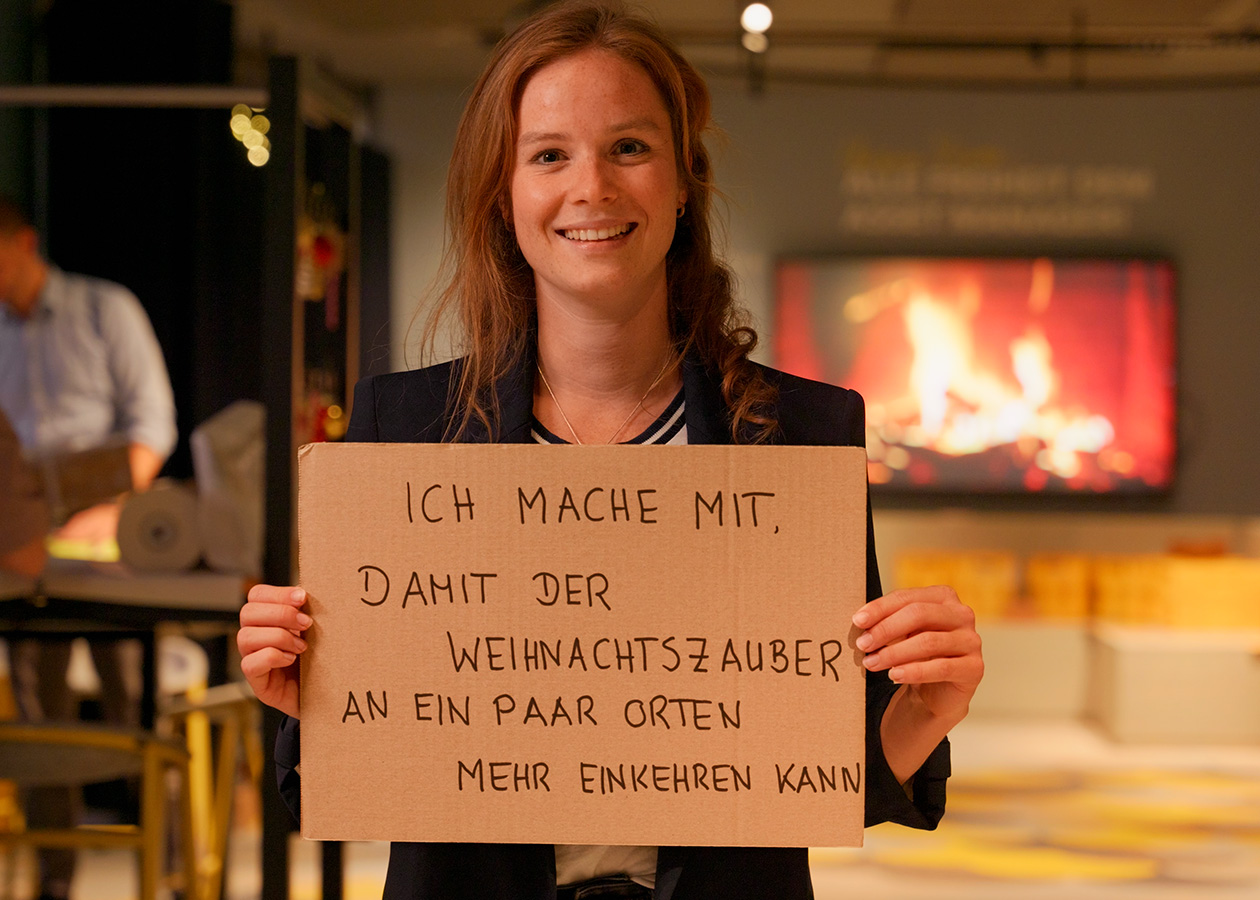 ICH MACHE MIT,
DAMIT DER
WEIHNACHTSZAUBER
AN EIN PAAR ORTEN
MEHR EINKEHREN KANN